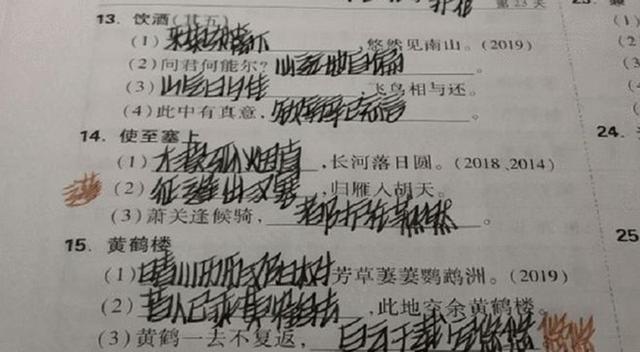 第23天
13. 饮酒(其五)
(1) ,悠然见南山。(2019)
(2)问君何能尔? 地自偏。
(3)山气日夕佳,飞鸟相与还。
(4)此中有真意,欲辨已忘言。
14. 使至塞上
(1)大漠孤烟直,长河落日圆。(2018、2014)
(2)征蓬出汉塞,归雁入胡天。
(3)萧关逢候骑, 。
15. 黄鹤楼
(1)晴川历历汉阳树芳草萋萋鹦鹉洲。(2019)
(2)昔人已乘黄鹤去,此地空余黄鹤楼。
(3)黄鹤一去不复返,白云千载空悠悠
24.
25